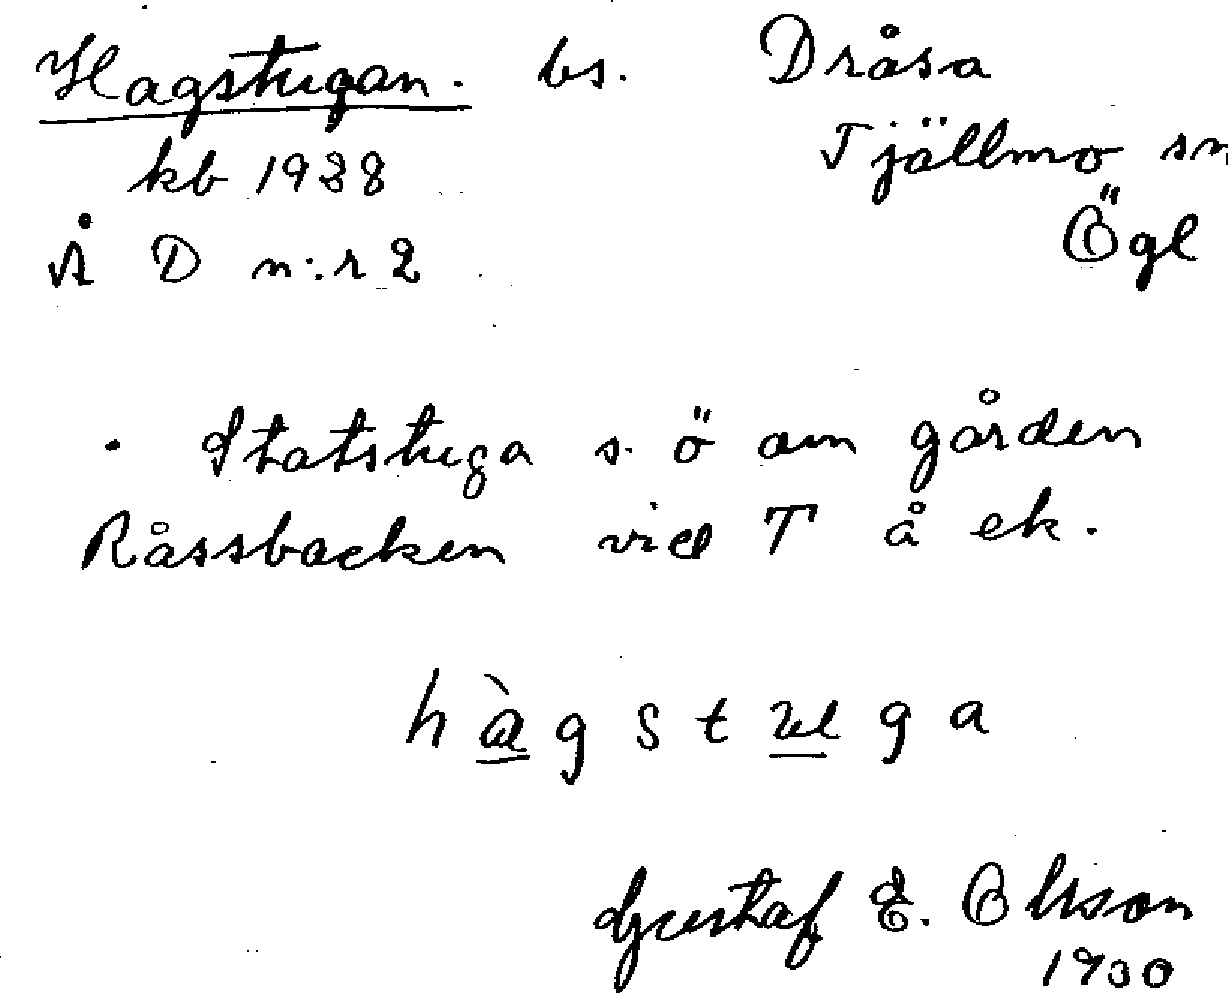 Hagstugan. bs. Dråsa
kb 1938 Tjällmo sn
Å D n:r 2 Ögl
Statstuga s. ö om gården
Råssbacken vid T å ek.
hàgstuga
Gustaf E. Olsson
1930